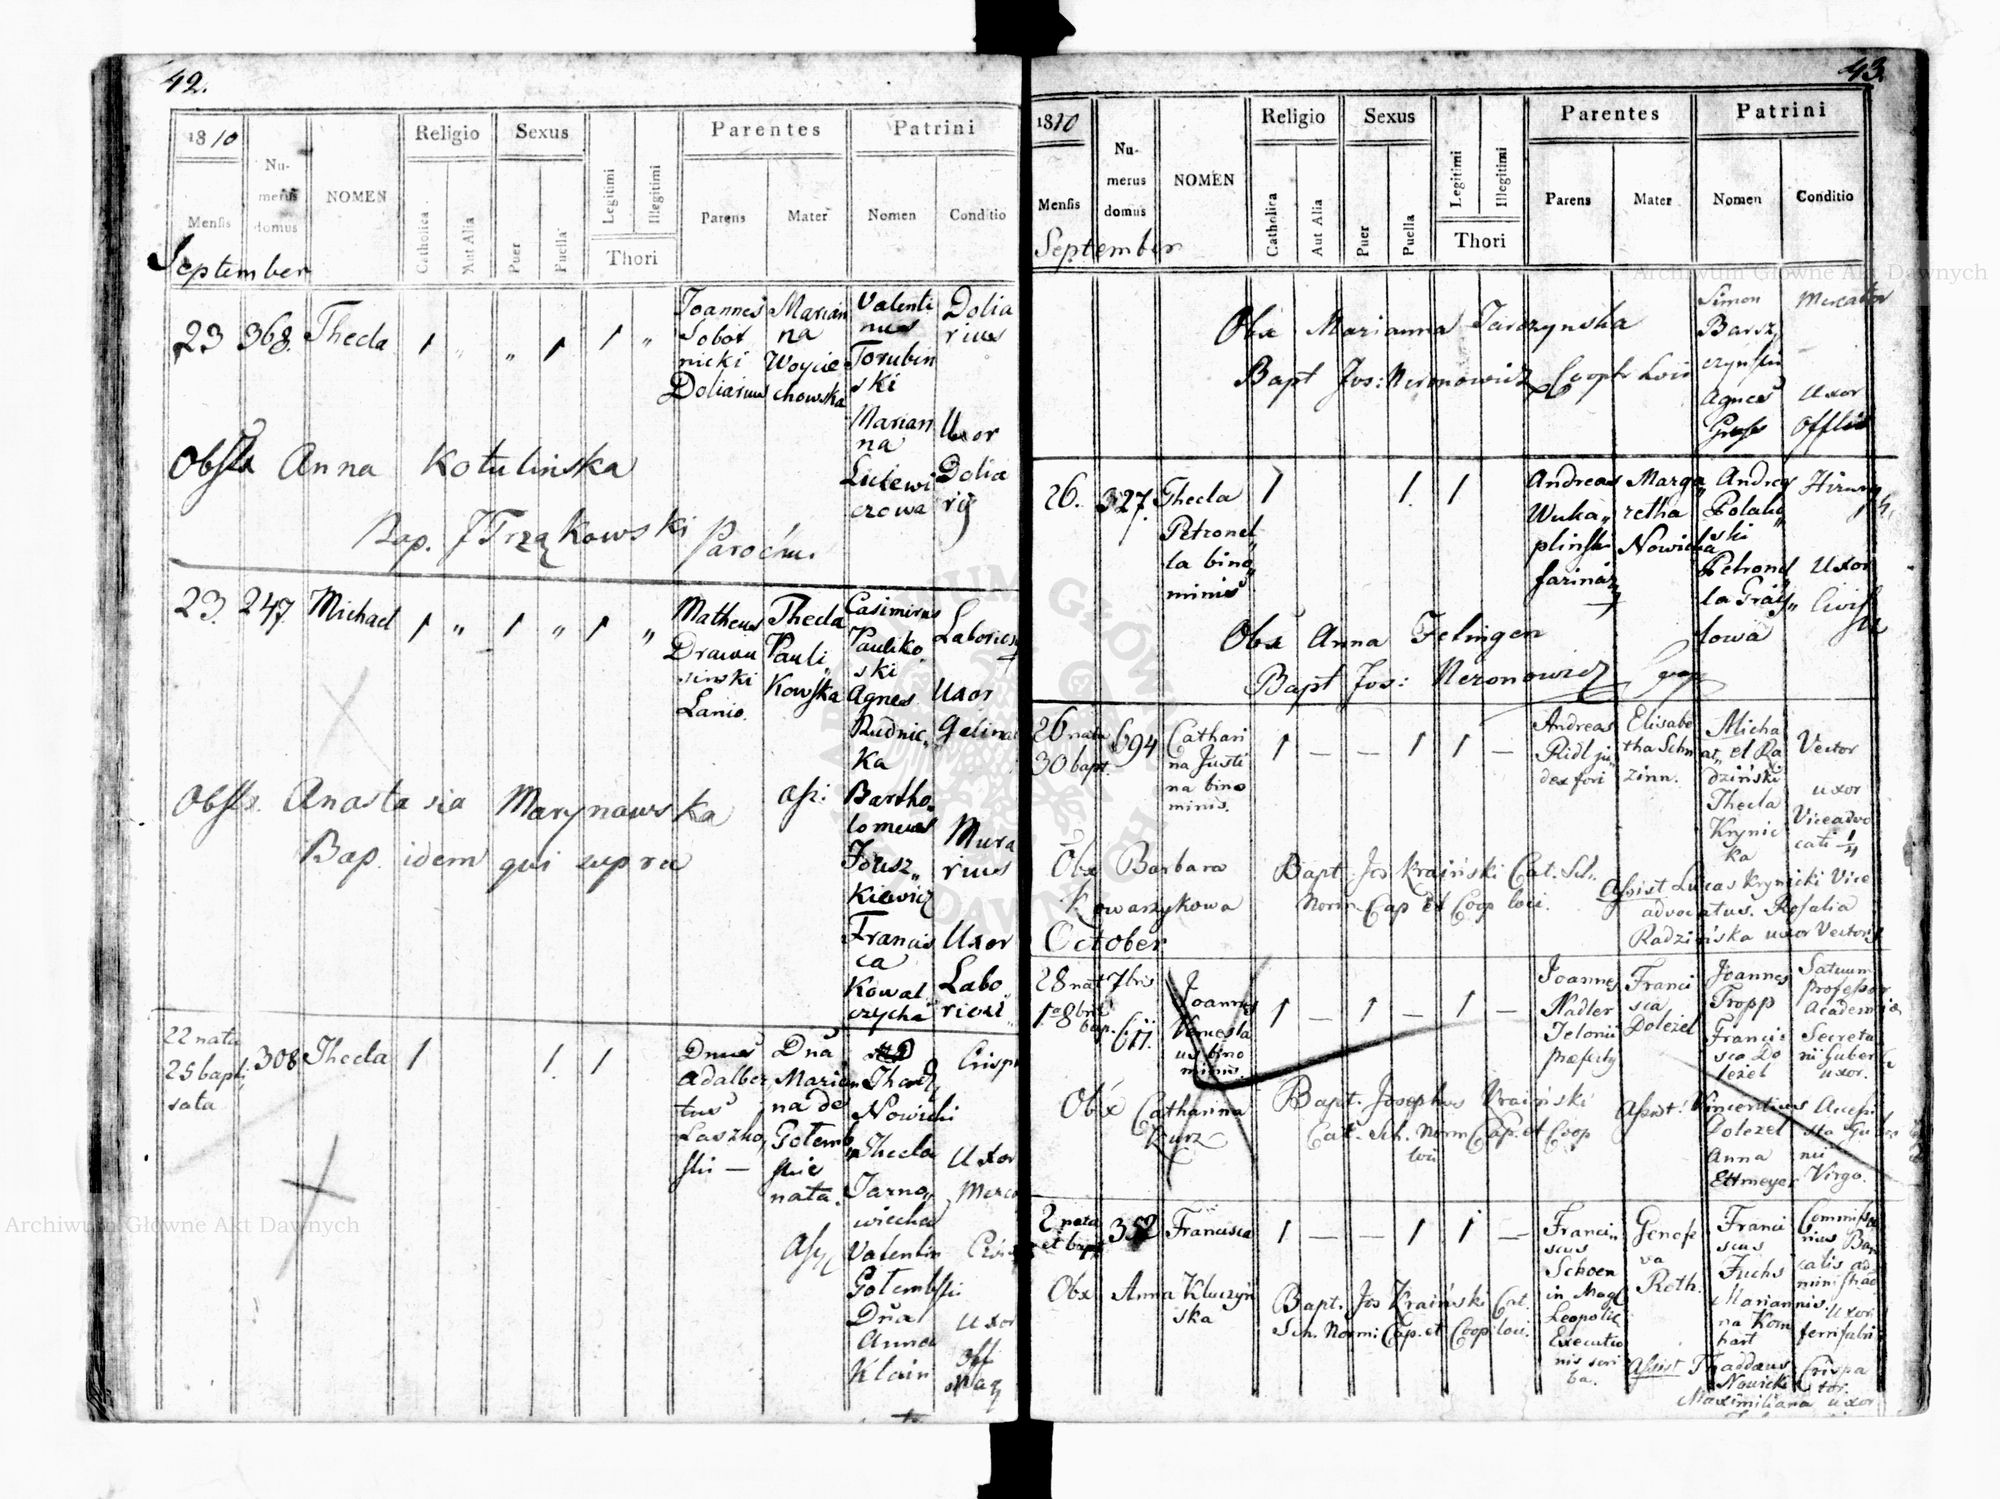 42.
1810
Mensis
Nu-
merus
domus
NOMEN
Religio
Catholica
Aut Alia
Sexus
Puer
Puella
Legitimi
Illegitimi
Thori
Parentes
Parens
Mater
Patrini
Nomen
Conditio
September
23 368. Thecla 1 " " 1 1 "
Joannes
Sobot
nicki
Doliarius
Marian
na
Woycie
chowska
Valenti
nus
Torubin
ski
Marian
na
Lutewi
czowa
Dolia
rius
Uxor
Dolia
rij
Obstx Anna Kotulinska
Bap. J Trząkowski Parochus
23. 247. Michael 1 " 1 " 1 "
Matheus
Drawu
sinski
Lanio.
Thecla
Pauli
kowska
Casimirus
Pauliko
ski
Agnes
Rudnic
ka
Bartho
lomeus
Jousz
kiewicz
Francis
ca
Kowal
czycha
Uxor
Mura
rius
Uxor
Labo
riosi
Obstx. Anastasia Marynowska ass:
Bap. idem qui supra
22 nata
25 bapti
sata
308 Thecla 1 1. 1
Dnus
Adalber
tus
Laszko
ski —
Dna
Marian
na de
Gołemb
skie
nata.
Thad
Nowicki
Thecla
Tarno
wiecka
Valentin
Gołembski
Dna
Anna
Klain
Uxor
Uxor
43.
1810
Mensis
Nu-
merus
domus
NOMEN
Religio
Catholica
Aut Alia
Sexus
Puer
Puella
Legitimi
Illegitimi
Thori
Parentes
Parens
Mater
Patrini
Nomen
Conditio
September
Obx Marianna Tarczynska
Bapt Jos: Neronowicz Cooptr Loci
Simon
Barsz
czynski
Agnes
Mercator
Uxor
26. 327. Thecla
Petronel
la bino
minis
1 1. 1
Andreas
Wuka
plinski
Marga
retha
Nowicka
Andreas
Polakow
ski
Petronel
la
Uxor
Obx Anna Felingen
Bapt Jos: Neronowicz Coop
26 nata
30 bapt.
694
Cathari
na Justi
na bino
minis.
1 — — 1 1 —
Andreas
Ridl ju
dex fori
Elisabe
tha Schn
zinn.
Micha
el Ra
dziński
Thecla
Krynic
ka
Vector
uxor
Viceadvo
cati
Obx Barbara
Kowarzykowa
Bapt. Jos Kraiński Cat. Sch.
Norm. Cap et Coop loci.
Assist Lucas Krynicki Vice
advocatus. Rosalia
Radzińska uxor Vectoris
October
28 nat 7bris
1a 8bris
bap.
611.
Joannes
Venesla
us bino
minis.
1 — 1 — 1 —
Joannes
Nadler
Telonii
Praefectus
Franci
sca
Doležel
Joannes
Tropp
Francis
sca Do
ležel
Professor
Academiæ
Secreta
rii Guber
uxor.
Obx Catharina
Kurz
Bapt. Josephus Kraiński
Cat. Sch. Norm Cap. et Coop
loci
Assist: Vincentius
Doležel
Anna
Ettmeyer
Virgo.
2 nata
et bapt
352 Francisca 1 — — 1 1 —
Franci
scus
Schoen
in Mag
Leopolic
Executio
nis scri
ba.
Genofe
va
Roth.
Franci
scus
Fuchs
Marian
na Korn
hart
Commissa
rius Ban
calis ad
ministrat
uxor
ferrifabri
Obx Anna Kluczyń
ska
Bapt. Jos Kraiński Cat.
Sch. Norm: Cap. et Coop loci.
Assist Thaddaeus
Nowicki
Maximiliana uxor
Crispa
tor.
Archiwum Główne Akt Dawnych
Archiwum Główne Akt Dawnych
ARCHIWUM GŁÓWNE AKT DAWNYCH